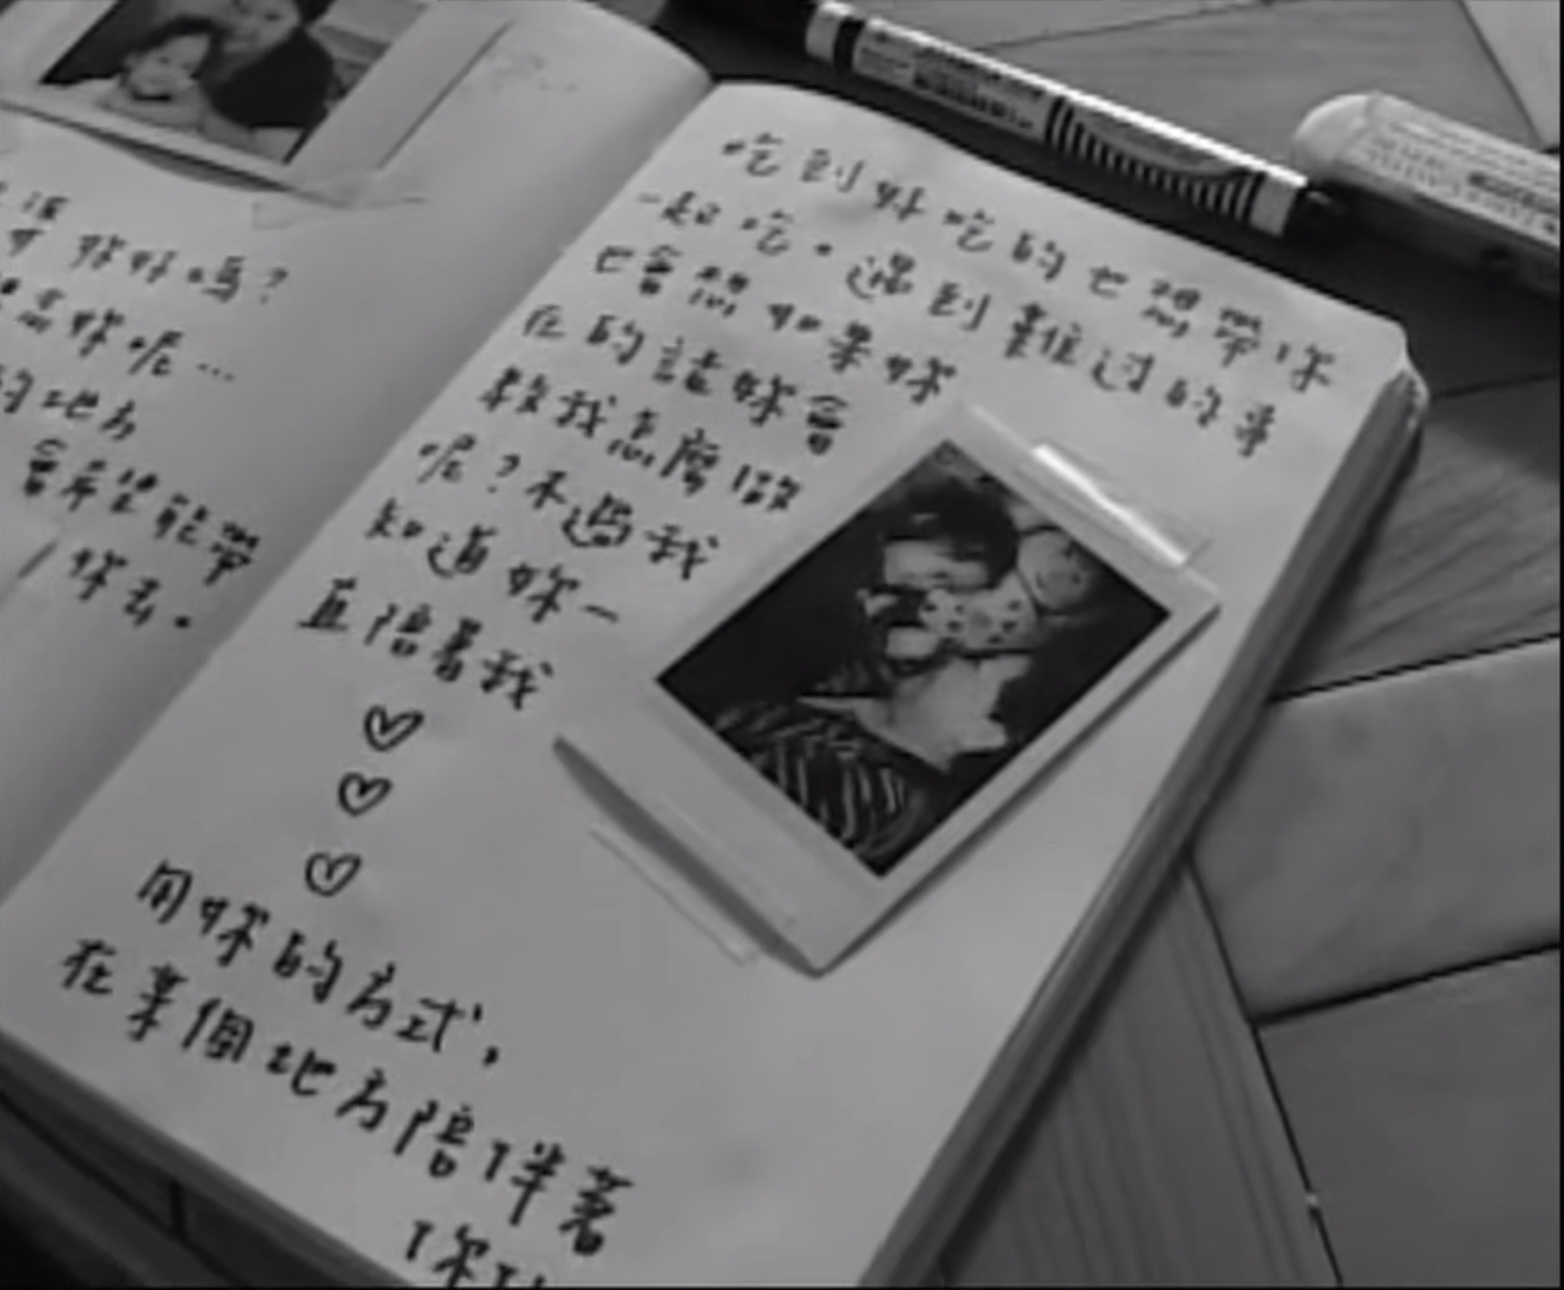 妳好嗎?
妳呢…
的地方
會希望能帶
妳去。
吃到好吃的也想帶你
一起吃。遇到難过的事
也會想如果妳
在的話妳會
教我怎麼做
呢?不過我
知道妳一
直陪着我
用妳的方式,
在某個地方陪伴著